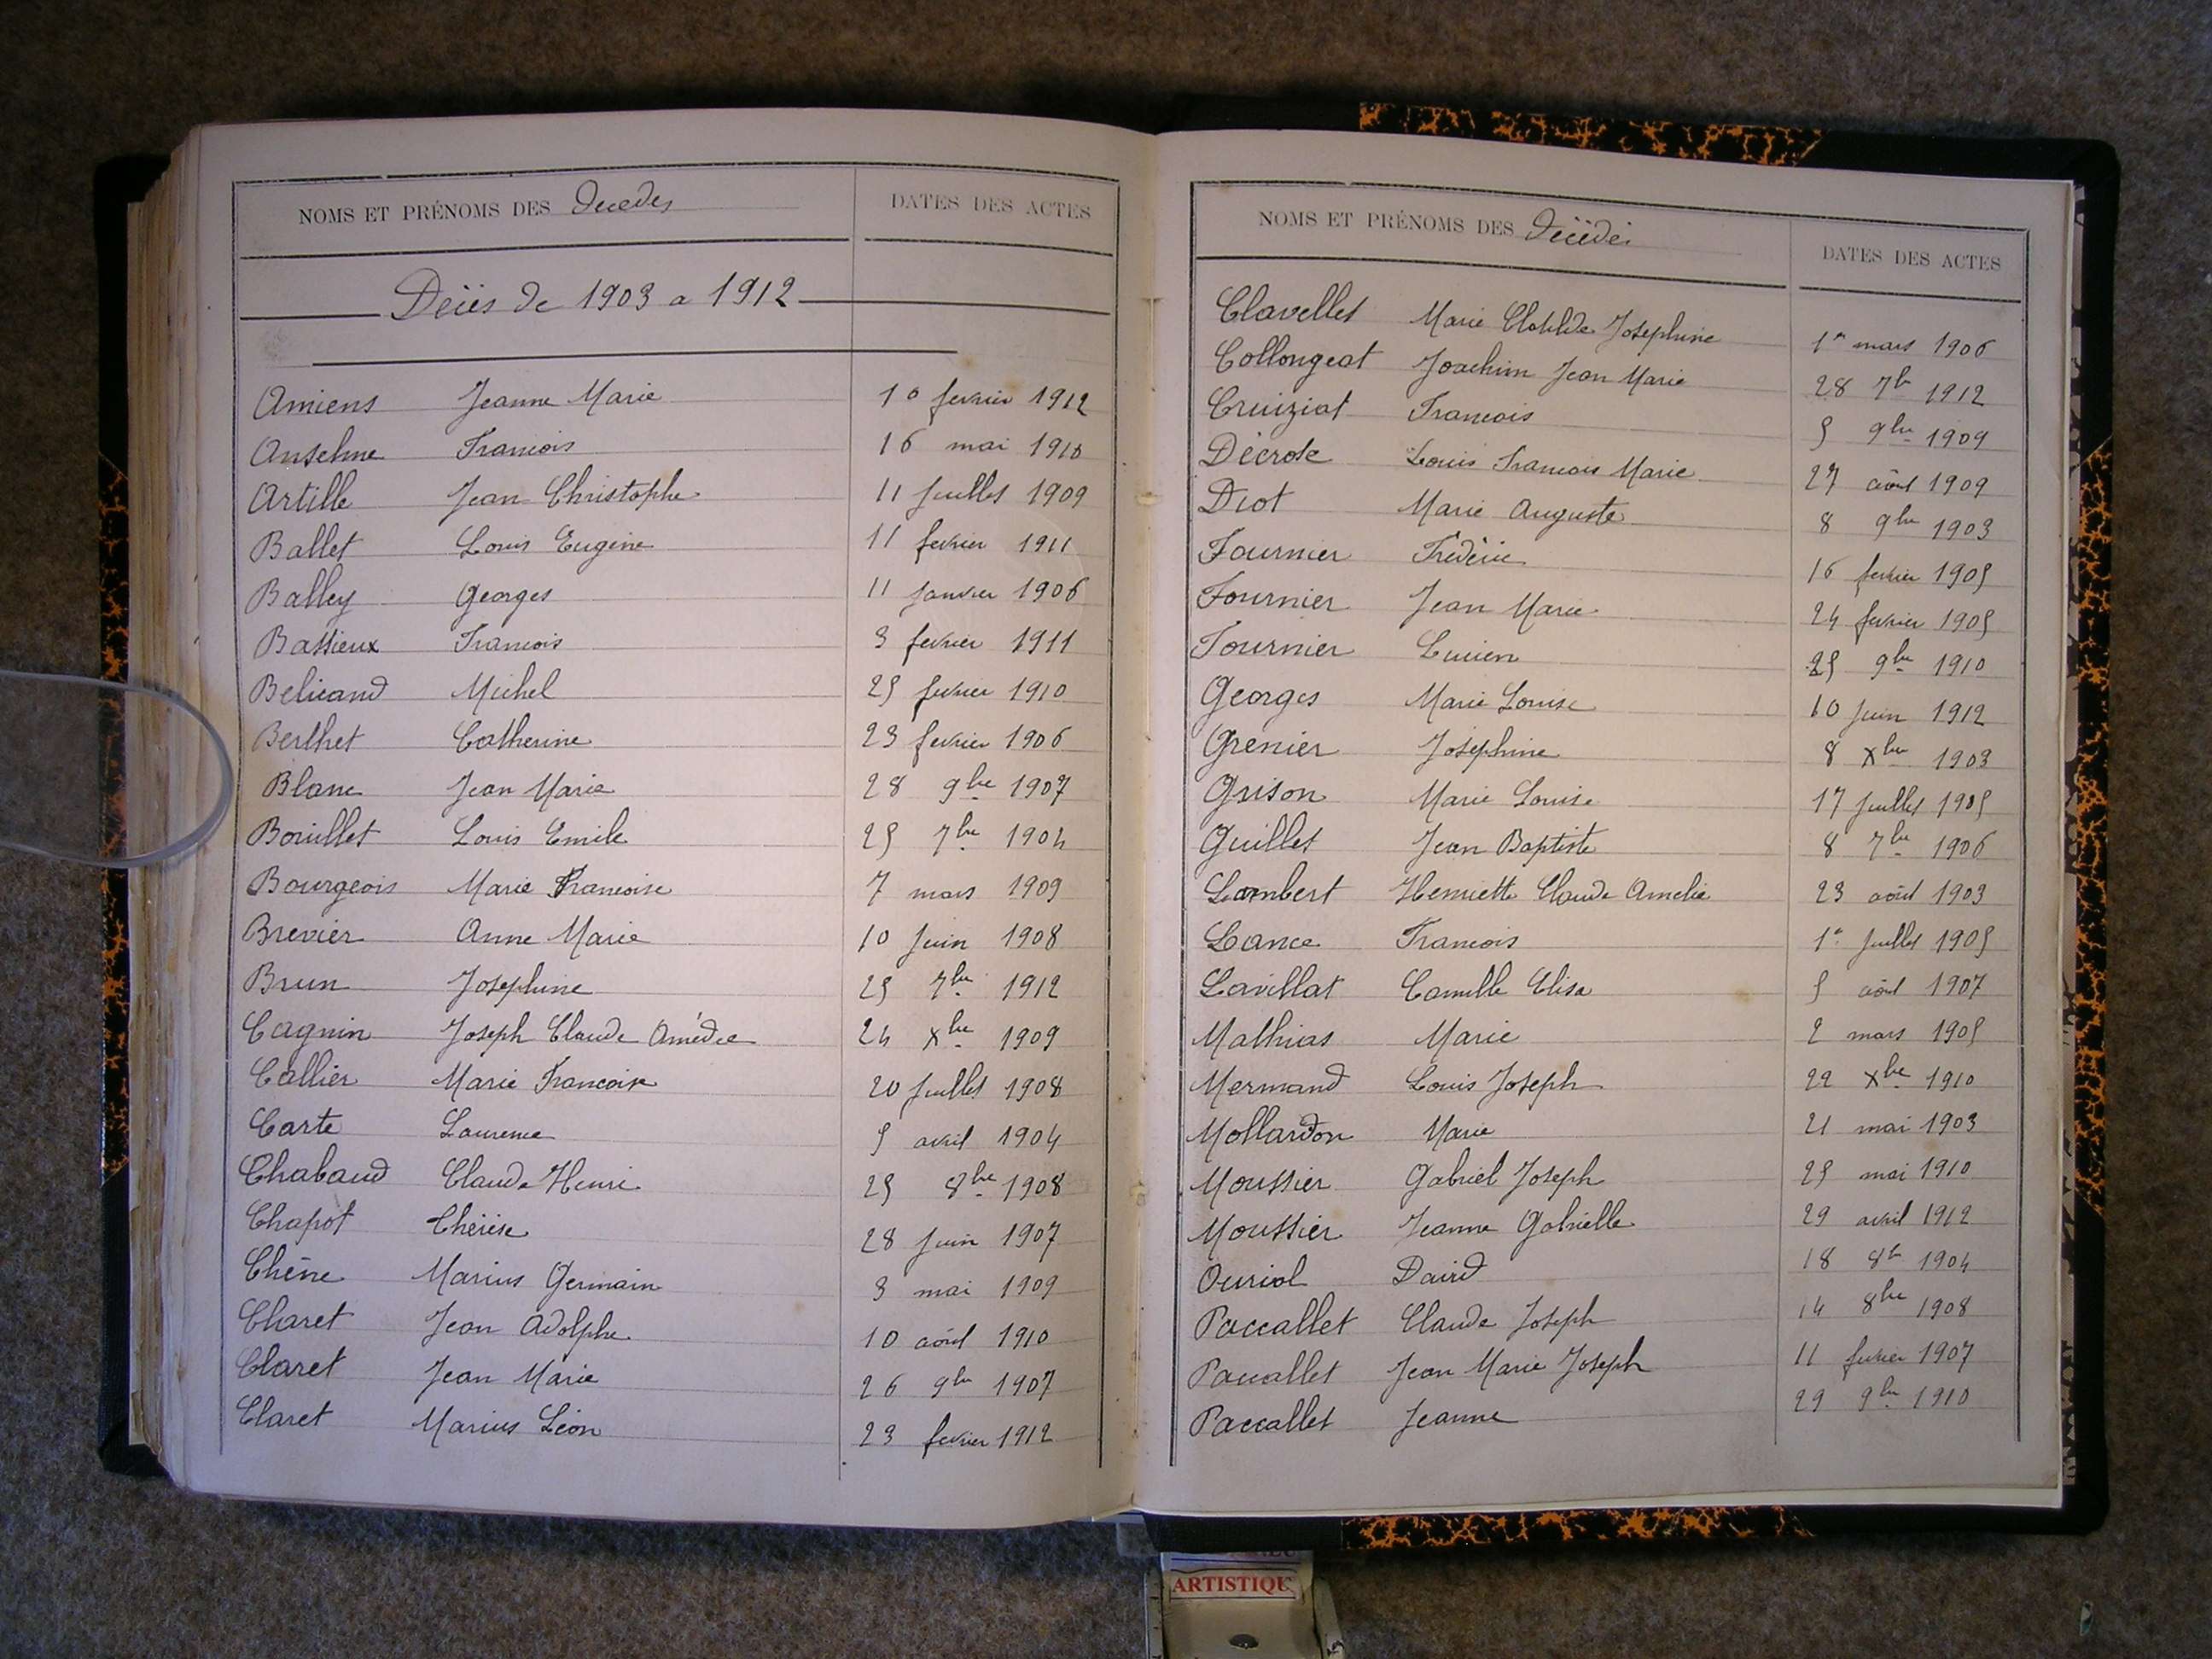 NOMS ET PRÉNOMS DES Decedes DATES DES ACTES
Décès de 1903 a 1912
Amiens Jeanne Marie 10 fevrier 1912
Anselme Francois 16 mai 1910
Artille Jean Christophe 11 Juillet 1909
Ballet Louis Eugène 11 fevrier 1911
Balley Georges 11 Janvier 1906
Bassieux Francois 3 fevrier 1911
Belicand Michel 25 fevrier 1910
Berthet Catherine 23 fevrier 1906
Blanc Jean Marie 28 9bre 1907
Bouillet Louis Emile 25 7bre 1904
Bourgeois Marie Francoise 7 mars 1909
Brevier Anne Marie 10 Juin 1908
Brun Josephine 25 7bre 1912
Cagnin Joseph Claude Amédée 24 Xbre 1909
Callier Marie Francoise 20 Juillet 1908
Carte Laurence 5 avril 1904
Chabaud Claude Henri 25 8bre 1908
Chapot Thérèse 28 Juin 1907
Chêne Marius Germain 3 mai 1909
Claret Jean Adolphe 10 août 1910
Claret Jean Marie 26 9bre 1907
Claret Marius Léon 23 fevrier 1912
NOMS ET PRÉNOMS DES Décédés DATES DES ACTES
Clavellet Marie Clotilde Josephine 1er mars 1906
Collongeat Joachim Jean Marie 28 7bre 1912
Cruiziat Francois 5 9bre 1909
Décrole Louis Francois Marie 27 août 1909
Diot Marie Auguste 8 9bre 1903
Fournier Frédéric 16 fevrier 1905
Fournier Jean Marie 24 fevrier 1905
Fournier Lucien 25 9bre 1910
Georges Marie Louise 10 Juin 1912
Grenier Joséphine 8 Xbre 1903
Grison Marie Louise 17 Juillet 1905
Guillet Jean Baptiste 8 7bre 1906
Lambert Henriette Claude Amelie 23 août 1903
Lance Francois 1er Juillet 1905
Lavillat Camille Elisa 5 août 1907
Mathias Marie 2 mars 1905
Mermand Louis Joseph 22 Xbre 1910
Mollardon Marie 21 mai 1903
Moussier Gabriel Joseph 25 mai 1910
Moussier Jeanne Gabrielle 29 avril 1912
Ouriol David 18 8bre 1904
Paccallet Claude Joseph 14 8bre 1908
Paccallet Jean Marie Joseph 11 fevrier 1907
Paccallet Jeanne 29 9bre 1910
ARTISTIQU